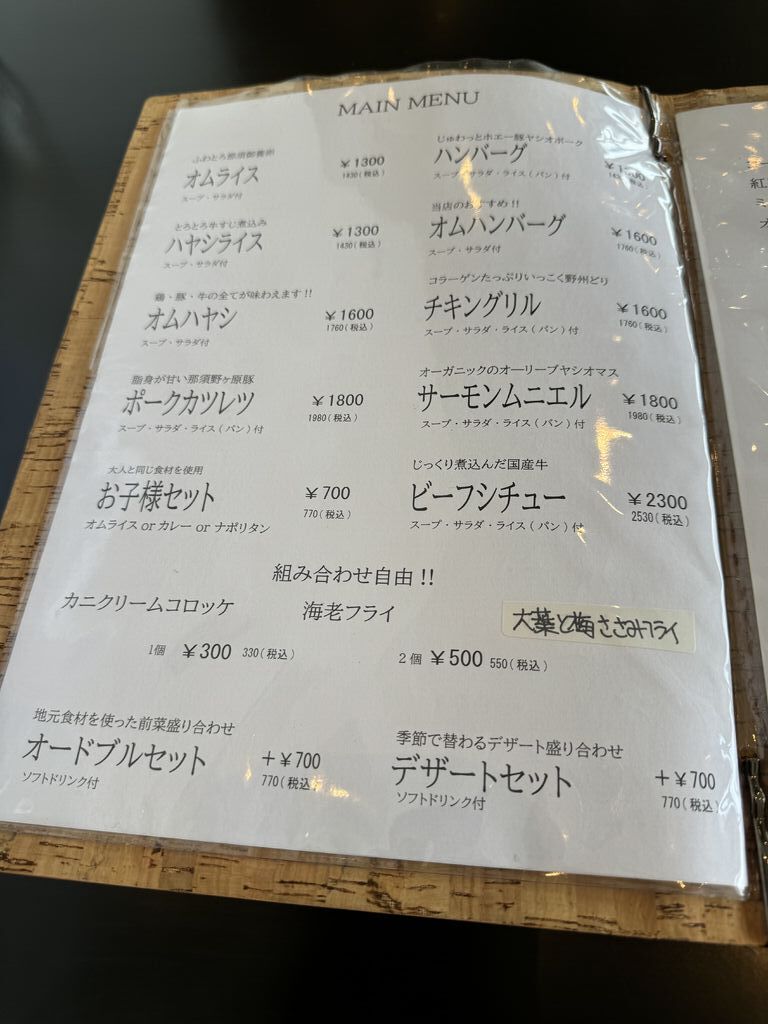 MAIN MENU
ふわとろ那須御養卵
オムライス
¥1300
1430(税込)
スープ・サラダ付
とろとろ牛すじ煮込み
ハヤシライス
¥1300
1430(税込)
スープ・サラダ付
鶏・豚・牛の全てが味わえます!!
オムハヤシ
¥1600
1760(税込)
スープ・サラダ付
脂身が甘い那須野ヶ原豚
ポークカツレツ
¥1800
1980(税込)
スープ・サラダ・ライス(パン)付
大人と同じ食材を使用
お子様セット
¥700
770(税込)
オムライス or カレー or ナポリタン
じゅわっとホエー豚ヤシオポーク
ハンバーグ
スープ・サラダ・ライス(パン)付
当店のおすすめ!!
オムハンバーグ
¥1600
1760(税込)
スープ・サラダ付
コラーゲンたっぷりいっこく野州どり
チキングリル
¥1600
1760(税込)
スープ・サラダ・ライス(パン)付
オーガニックのオーリーブヤシオマス
サーモンムニエル
¥1800
1980(税込)
スープ・サラダ・ライス(パン)付
じっくり煮込んだ国産牛
ビーフシチュー
¥2300
2530(税込)
スープ・サラダ・ライス(パン)付
組み合わせ自由!!
カニクリームコロッケ 海老フライ 大葉と梅ささみフライ
1個 ¥300 330(税込) 2個 ¥500 550(税込)
地元食材を使った前菜盛り合わせ
オードブルセット
+¥700
770(税込)
ソフトドリンク付
季節で替わるデザート盛り合わせ
デザートセット
+¥700
770(税込)
ソフトドリンク付